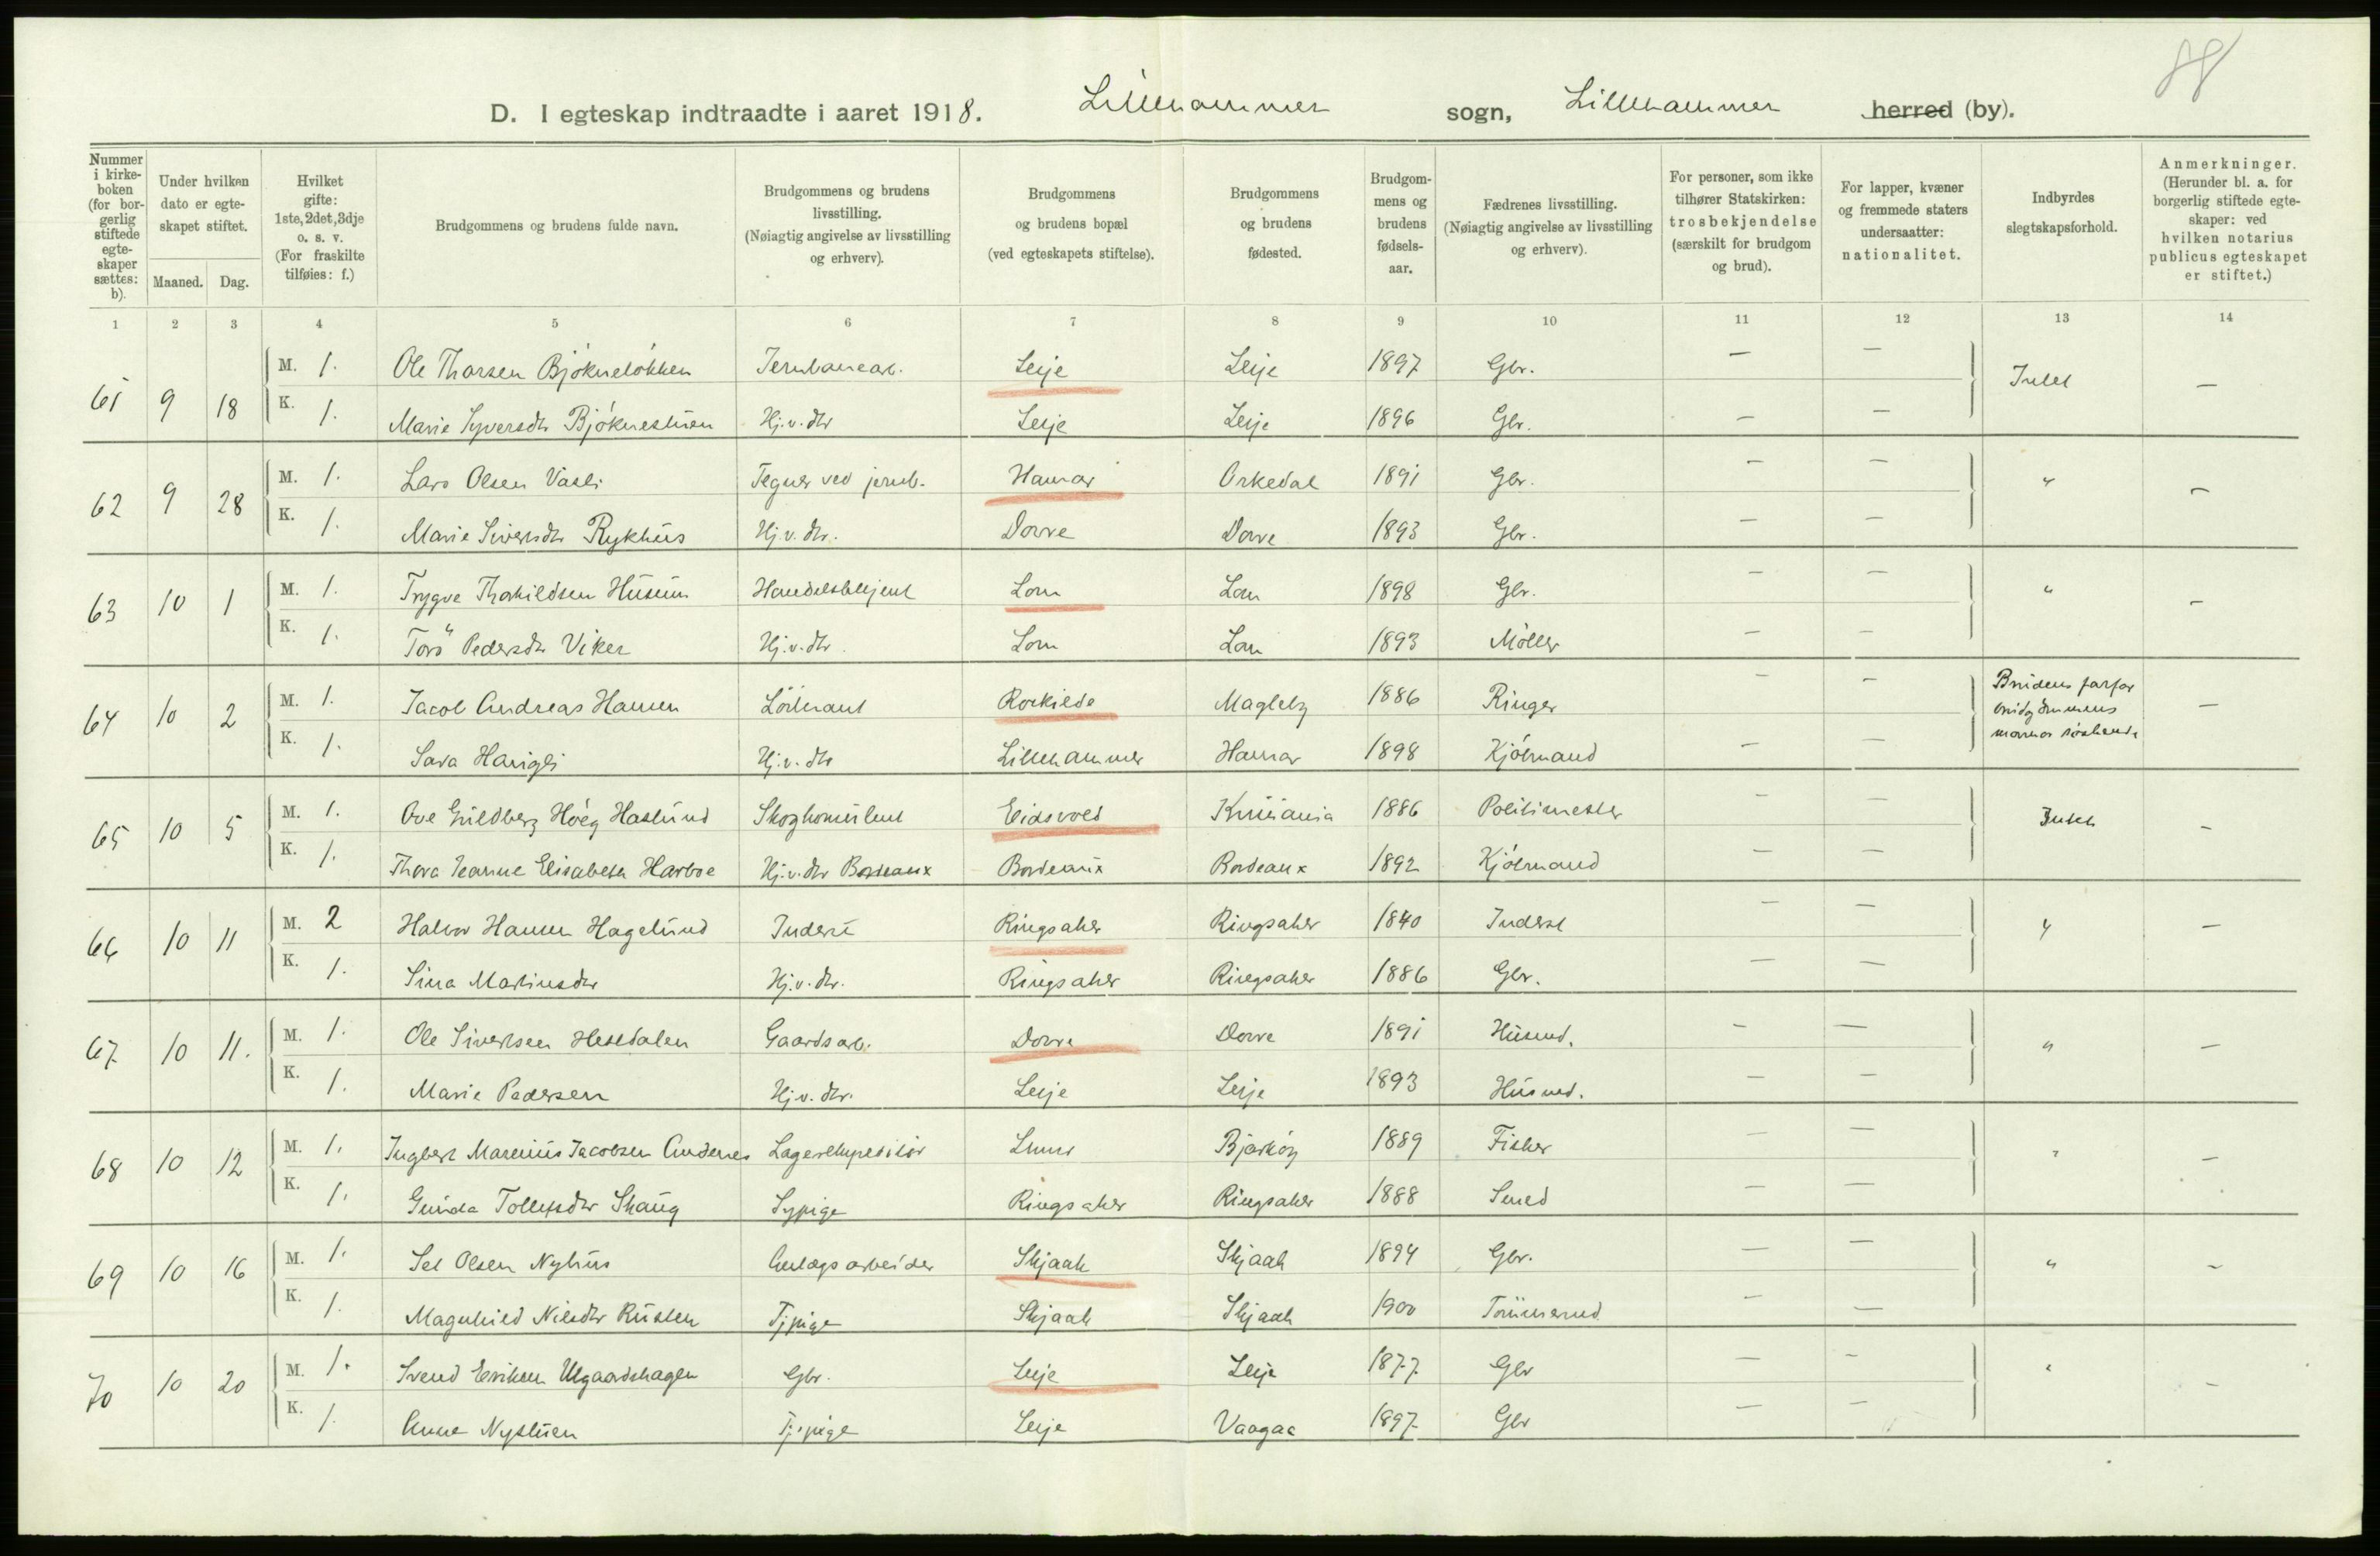 D. I egteskap indtraadte i aaret 1918. Lillehammer sogn, Lillehammer herred (by).
Nummer i kirkeboken (for borgerlig stiftede egteskaper sættes: b).
Under hvilken dato er egteskapet stiftet.
Maaned. Dag.
Hvilket gifte: 1ste, 2det, 3dje o. s. v. (For fraskilte tilføies: f.)
Brudgommens og brudens fulde navn.
Brudgommens og brudens livsstilling. (Nøiagtig angivelse av livsstilling og erhverv).
Brudgommens og brudens bopæl (ved egteskapets stiftelse).
Brudgommens og brudens fødested.
Brudgommens og brudens fødselsaar.
Fædrenes livsstilling. (Nøiagtig angivelse av livsstilling og erhverv).
For personer, som ikke tilhører Statskirken: trosbekjendelse (særskilt for brudgom og brud).
For lapper, kvæner og fremmede staters undersaatter: nationalitet.
Indbyrdes slegtskapsforhold.
Anmerkninger. (Herunder bl. a. for borgerlig stiftede egteskaper: ved hvilken notarius publicus egteskapet er stiftet.)
1 2 3 4 5 6 7 8 9 10 11 12 13 14
61 9 18 M. 1. Ole Thorsen Bjökneløkken Jernbanearb. Lesje Lesje 1897 Gbr. — — Intet —
K. 1. Marie Syversdtr Bjöknestuen Hj.v. dtr Lesje Lesje 1896 Gbr. — —
62 9 28 M. 1. Lars Olsen Vasli Tegner ved jernb. Hamar Orkedal 1891 Gbr. — — " —
K. 1. Marie Sivertsdtr Rykhus Hj.v. dtr. Dovre Dovre 1893 Gbr. — —
63 10 1 M. 1. Trygve Thorkildsen Husum Handelsbetjent Lom Lom 1898 Gbr. — — " —
K. 1. Pedersdtr Viker Hj.v. dtr. Lom Lom 1893 Möller — —
64 10 2 M. 1. Jacob Andreas Hansen Löitnant Roskilde Magleby 1886 Ringer — — Brudens farfar brudgommens mormor söskende —
K. 1. Sara Haugli Hj.v. dtr Lillehammer Hamar 1898 Kjöbmand — —
65 10 5 M. 1. Ove Guldberg Höeg Haslund Skogkonsulent Eidsvold Kristiania 1886 Politimester — — Intet —
K. 1. Thora Jeanne Elisabeth Harboe Hj.v. dtr Bordeaux Bordeaux Bordeaux 1892 Kjöbmand — —
66 10 11 M. 2 Halvor Hansen Hagelund Inderst Ringsaker Ringsaker 1840 Inderst — — " —
K. 1. Sina Martinsdtr Hj.v. dtr. Ringsaker Ringsaker 1886 Gbr. — —
67 10 11. M. 1. Ole Sivertsen Dovre Dovre 1891 Husmd. — — " —
Gaardsarb.
K. 1. Marie Pedersen Hj.v. dtr. Lesje Lesje 1893 Husmd. — —
68 10 12 M. 1. Ingbert Marenius Jacobsen Andenes Lagerekspeditör Bjarköy 1889 Fisker — — " —
K. 1. Gunda Tollefsdtr Skaug Sypige Ringsaker Ringsaker 1888 Smed — —
69 10 16 M. 1. Sel Olsen Nyhus Anlægsarbeider Skjaak Skjaak 1894 Gbr. — — " —
K. 1. Magnhild Nilsdtr Rusten Tj.pige Skjaak Skjaak 1900 Tömmermd — —
70 10 20 M. 1. Svend Eriksen Ulgaardshagen Gbr. Lesje Lesje 1877 Gbr — — " —
K. 1. Anne Nystuen Tj.pige Lesje Vaagaa 1897 Gbr — —